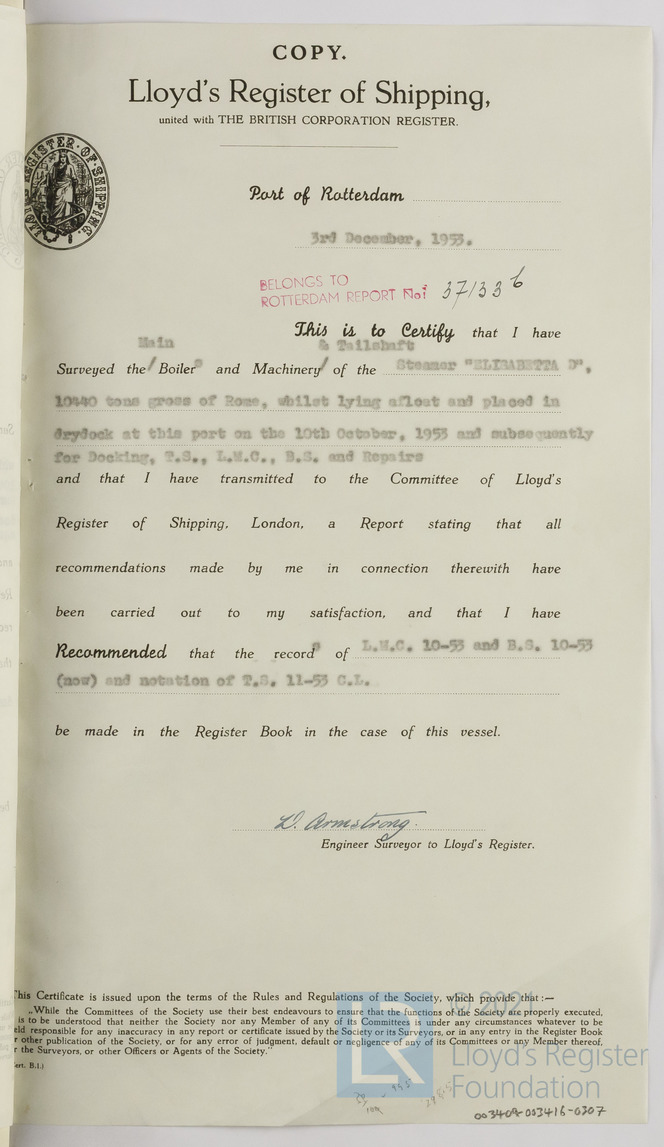 COPY.
Lloyd's Register of Shipping,
united with THE BRITISH CORPORATION REGISTER.
LLOYD'S REGISTER OF SHIPPING.
Port of Rotterdam
3rd December, 1953.
BELONGS TO
ROTTERDAM REPORT No: 37133 b
This is to Certify that I have
Main & Tailshaft
Surveyed the/ Boilers and Machinery/ of the Steamer "ELISABETTA D",
10440 tons gross of Rome, whilst lying afloat and placed in
drydock at this port on the 10th October, 1953 and subsequently
for Docking, T.S., L.M.C., B.S. and Repairs
and that I have transmitted to the Committee of Lloyd's
Register of Shipping, London, a Report stating that all
recommendations made by me in connection therewith have
been carried out to my satisfaction, and that I have
Recommended that the records of L.M.C. 10-53 and B.S. 10-53
(now) and notation of T.S. 11-53 C.L.
be made in the Register Book in the case of this vessel.
D. Armstrong.
Engineer Surveyor to Lloyd's Register.
This Certificate is issued upon the terms of the Rules and Regulations of the Society, which provide that :—
„While the Committees of the Society use their best endeavours to ensure that the functions of the Society are properly executed,
is to be understood that neither the Society nor any Member of any of its Committees is under any circumstances whatever to be
eld responsible for any inaccuracy in any report or certificate issued by the Society or its Surveyors, or in any entry in the Register Book
r other publication of the Society, or for any error of judgment, default or negligence of any of its Committees or any Member thereof,
r the Surveyors, or other Officers or Agents of the Society."
ert. B.1.)
© 2021
LR
Lloyd's Register
Foundation
003409-003416-0307